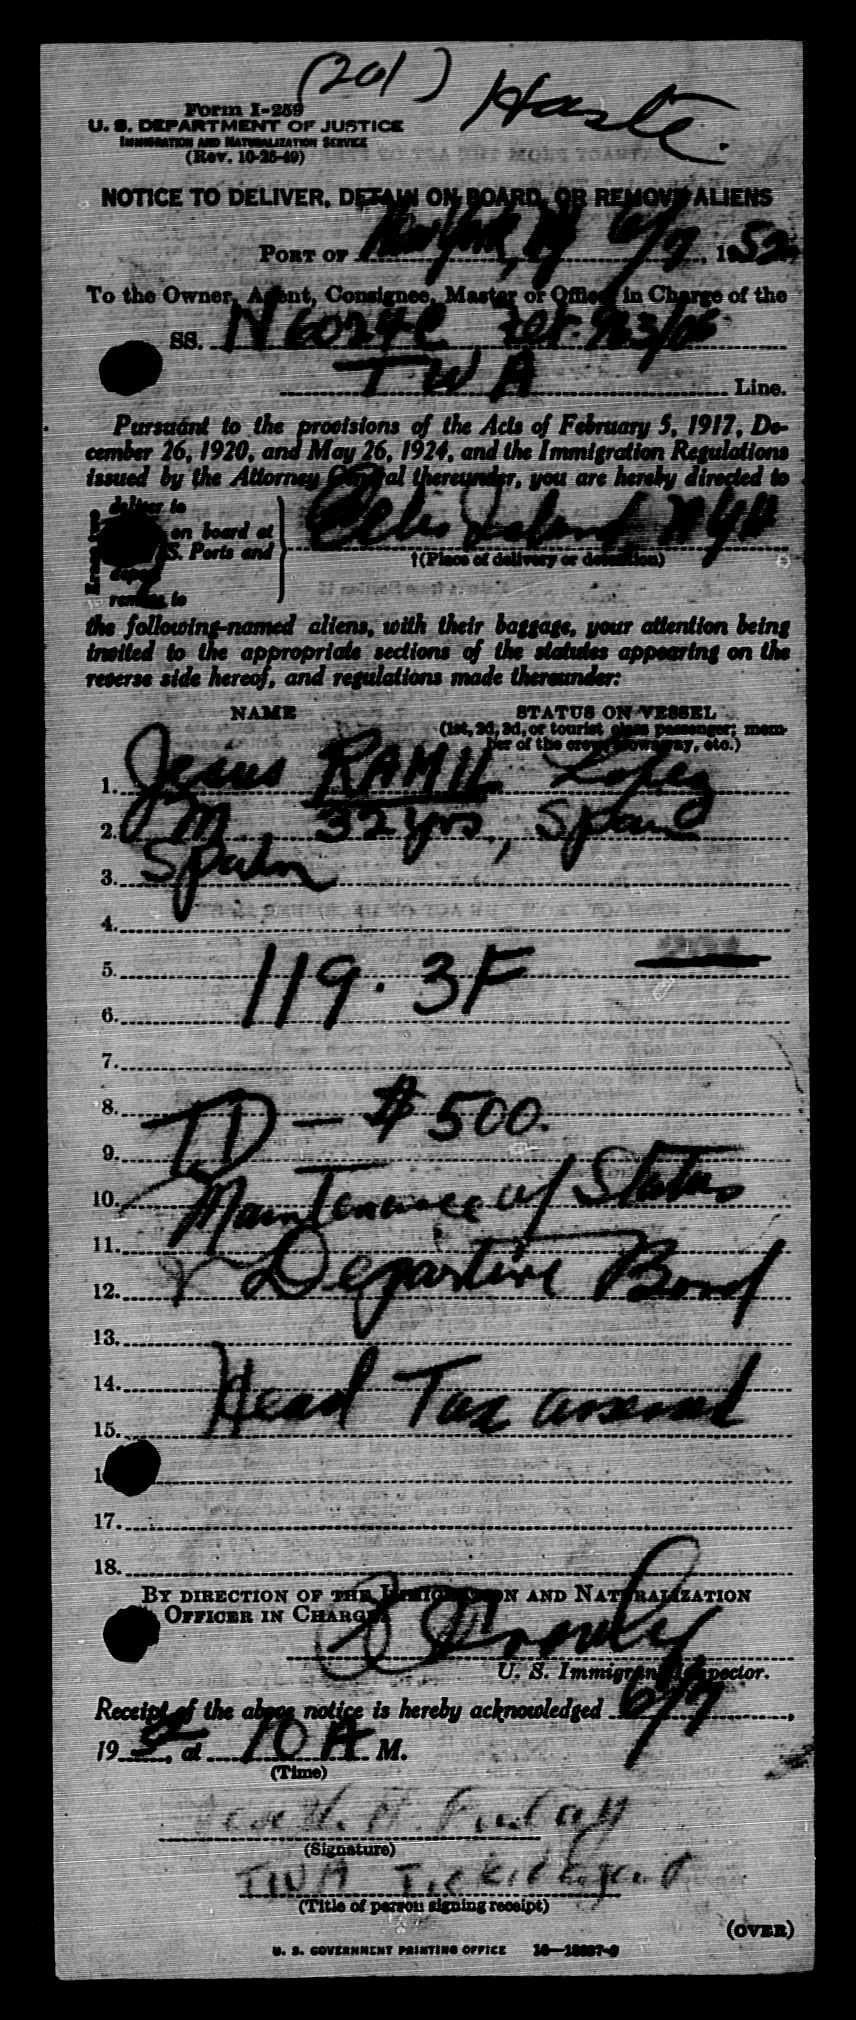 (201) Haste.
Form I-259
U. S. DEPARTMENT OF JUSTICE
IMMIGRATION AND NATURALIZATION SERVICE
(Rev. 10-25-49)
NOTICE TO DELIVER, DETAIN ON BOARD, OR REMOVE ALIENS
PORT OF New York, NY 6/7, 1952
To the Owner, Agent, Consignee, Master or Officer in Charge of the
SS. N6024C 963/06
TWA Line.
Pursuant to the provisions of the Acts of February 5, 1917, De-
cember 26, 1920, and May 26, 1924, and the Immigration Regulations
issued by the Attorney General thereunder, you are hereby directed to
deliver to
on board at
S. Ports and
deport
remove to
Ellis Island NYH
†(Place of delivery or detention)
the following-named aliens, with their baggage, your attention being
invited to the appropriate sections of the statutes appearing on the
reverse side hereof, and regulations made thereunder:
NAME STATUS ON VESSEL
(1st, 2d, 3d, or tourist class passenger; mem-
ber of the crew, stowaway, etc.)
1. Jesus RAMIL Lopez
2. M 32 yrs, Spain
3. Spain
4.
5.
119.3F
6.
7.
8.
TD - $500.
9.
10. Maintenance of Status
11.
& Departure Bond
12.
13.
14.
Head Tax assessed
15.
17.
18.
BY DIRECTION OF THE IMMIGRATION AND NATURALIZATION
OFFICER IN CHARGE
U. S. Immigrant Inspector.
Receipt of the above notice is hereby acknowledged 6/7,
1952, at 10 A M.
(Time)
(Signature)
TWA Ticket Agent
(Title of person signing receipt)
(OVER)
U. S. GOVERNMENT PRINTING OFFICE